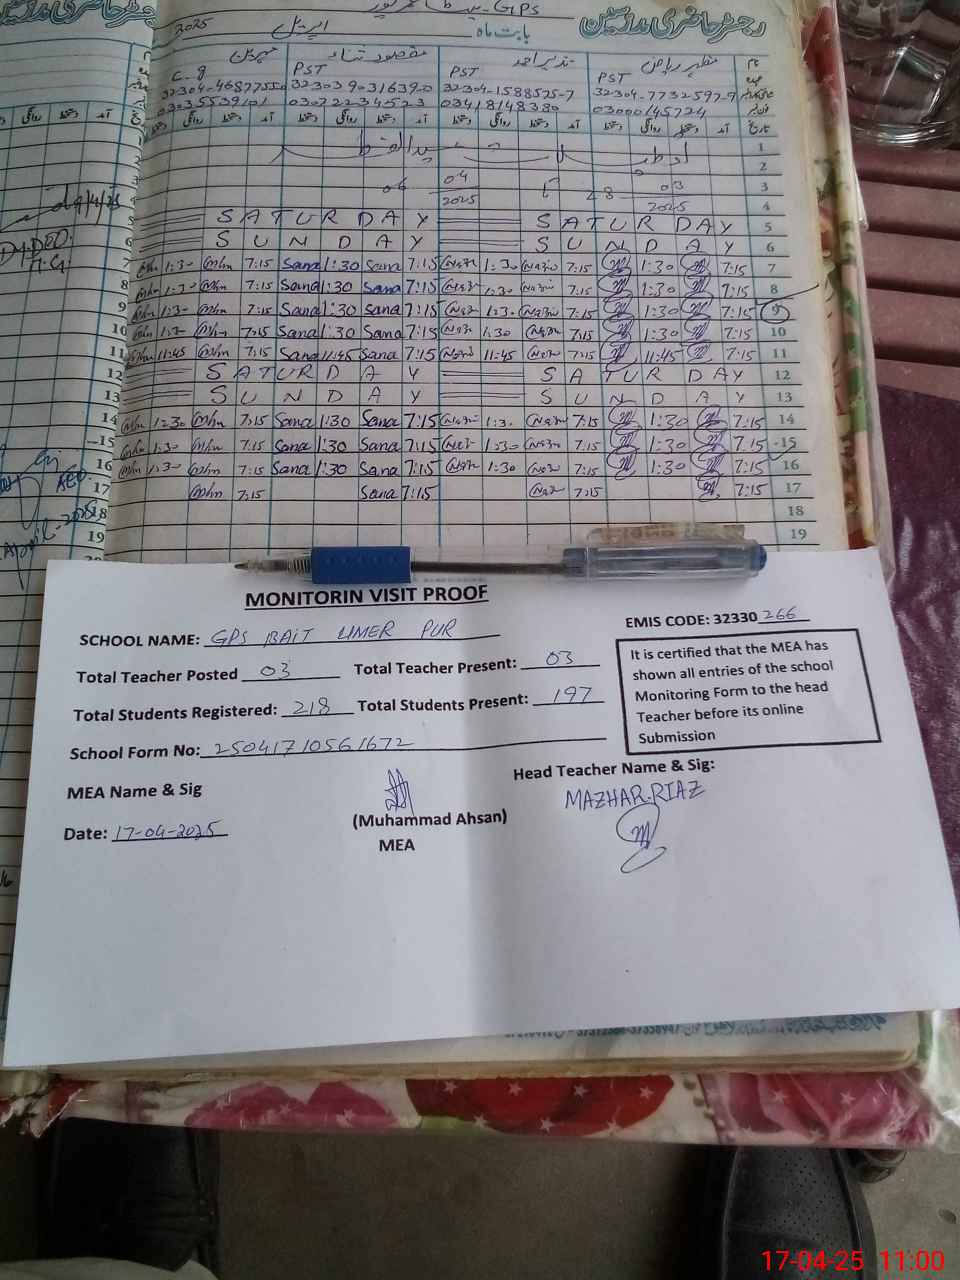 GPS
رجسٹر حاضری مدرسین
2025 اپریل بابت ماہ
مقصود ثناء نذیر احمد مظہر ریاض
C.g PST PST PST
32303-9031639-0 32304-1588575-7 32304-7732597-9
03035539101 03072234523 03418148380 03000145724
آمد دستخط روانگی دستخط آمد دستخط روانگی دستخط تاریخ
1
2
06 04 28 03 3
2025 2025 4
SATURDAY SATURDAY 5
SUNDAY SUNDAY 6
1:30 7:15 Sana 1:30 Sana 7:15 1:30 7:15 1:30 7:15 7
1:30 7:15 Sana 1:30 Sana 7:15 1:30 7:15 1:30 7:15 8
1:30 7:15 Sana 1:30 Sana 7:15 1:30 7:15 1:30 7:15 9
1:30 7:15 Sana 1:30 Sana 7:15 1:30 7:15 1:30 7:15 10
11:45 7:15 Sana 11:45 Sana 7:15 11:45 7:15 11:45 7:15 11
SATURDAY SATURDAY 12
SUNDAY SUNDAY 13
1:30 7:15 Sana 1:30 Sana 7:15 1:30 7:15 1:30 7:15 14
1:30 7:15 Sana 1:30 Sana 7:15 1:30 7:15 1:30 7:15 15
1:30 7:15 Sana 1:30 Sana 7:15 1:30 7:15 1:30 7:15 16
7:15 Sana 7:15 7:15 7:15 17
18
19
MONITORIN VISIT PROOF
SCHOOL NAME: GPS BAIT UMER PUR
EMIS CODE: 32330 266
Total Teacher Posted 03 Total Teacher Present: 03
Total Students Registered: 218 Total Students Present: 197
School Form No: 25041710561672
It is certified that the MEA has
shown all entries of the school
Monitoring Form to the head
Teacher before its online
Submission
MEA Name & Sig
Head Teacher Name & Sig:
MAZHAR.RIAZ
(Muhammad Ahsan)
Date: 17-04-2025
MEA
17-04-25 11:00